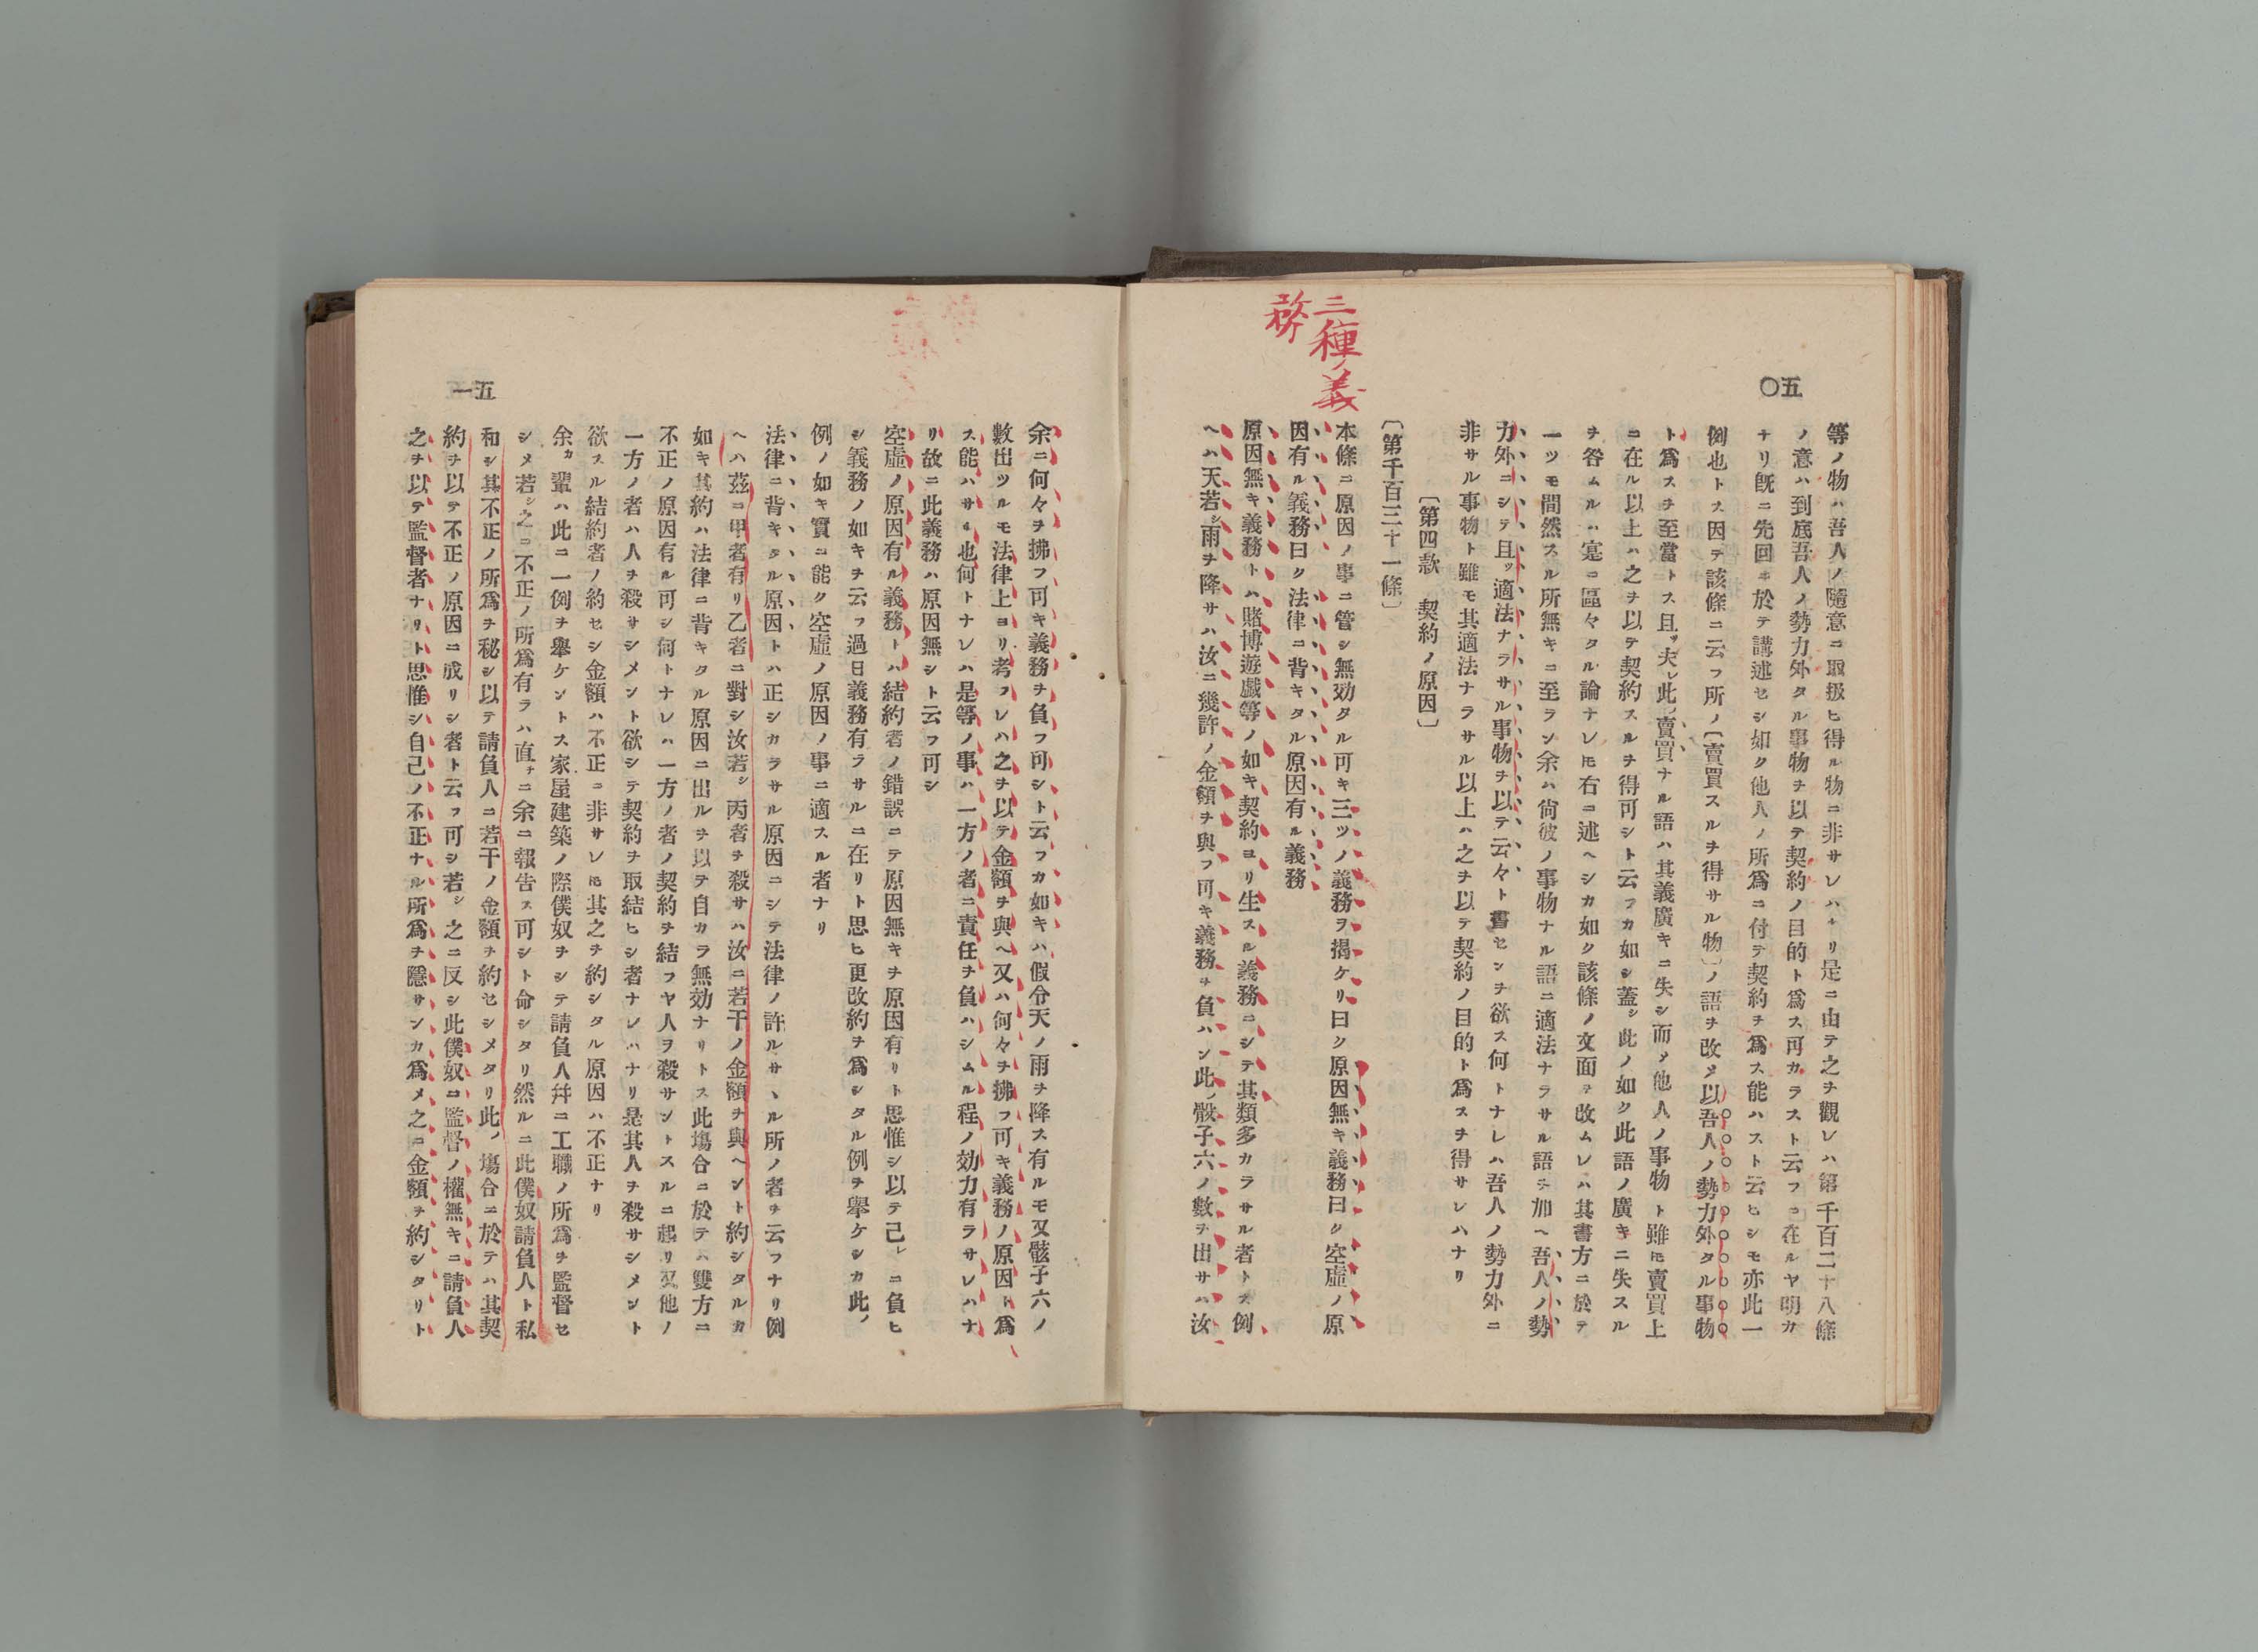 三種ノ義
務
五〇
等ノ物ハ吾人ノ隨意ニ取扱ヒ得ル物ニ非サレハナリ是ニ由テ之ヲ觀レハ第千百二十八條
ノ意ハ到底吾人ノ勢力外タル事物ヲ以テ契約ノ目的ト爲ス可カラスト云フニ在ルヤ明カ
ナリ既ニ先回ニ於テ講述セシ如ク他人ノ所爲ニ付テ契約ヲ爲ス能ハスト云ヒシモ亦此一
例也トス因テ該條ニ云フ所ノ〔賣買スルヲ得サル物〕ノ語ヲ改メ以吾人ノ勢力外タル事物
ト爲スヲ至當トス且ツ夫レ此ノ賣買ナル語ハ其義廣キニ失シ而メ他人ノ事物ト雖𪜈賣買上
ニ在ル以上ハ之ヲ以テ契約スルヲ得可シト云フカ如シ蓋シ此ノ如ク此語ノ廣キニ失スル
ヲ咎ムルハ寔ニ區々タル論ナレ𪜈右ニ述ヘシカ如ク該條ノ文面ヲ改ムレハ其書方ニ於テ
一ツモ間然スル所無キニ至ラン余ハ尙彼ノ事物ナル語ニ適法ナラサル語ヲ加ヘ吾人ノ勢
力外ニシテ且ツ適法ナラサル事物ヲ以テ云々ト書センヲ欲ス何トナレハ吾人ノ勢力外ニ
非サル事物ト雖モ其適法ナラサル以上ハ之ヲ以テ契約ノ目的ト爲スヲ得サレハナリ
〔第四款　契約ノ原因〕
〔第千百三十一條〕
本條ニ原因ノ事ニ管シ無効タル可キ三ツノ義務ヲ揭ケリ曰ク原因無キ義務曰ク空虛ノ原
因有ル義務曰ク法律ニ背キタル原因有ル義務
原因無キ義務トハ賭博遊戲等ノ如キ契約ヨリ生スル義務ニシテ其類多カラサル者トス例
ヘハ天若シ雨ヲ降サハ汝ニ幾許ノ金額ヲ與フ可キ義務ヲ負ハン此ノ骰子六ノ數ヲ出サハ汝
五一
余ニ何々ヲ拂フ可キ義務ヲ負フ可シト云フカ如キハ假令天ノ雨ヲ降ス有ルモ又骸子六ノ
數出ツルモ法律上ヨリ考フレハ之ヲ以テ金額ヲ與ヘ又ハ何々ヲ拂フ可キ義務ノ原因ト爲
ス能ハサル也何トナレハ是等ノ事ハ一方ノ者ニ責任ヲ負ハシムル程ノ効力有ラサレハナ
リ故ニ此義務ハ原因無シト云フ可シ
空虛ノ原因有ル義務トハ結約者ノ錯誤ニテ原因無キヲ原因有リト思惟シ以テ己レニ負ヒ
シ義務ノ如キヲ云フ過日義務有ラサルニ在リト思ヒ更改約ヲ爲シタル例ヲ擧ケシカ此ノ
例ノ如キ實ニ能ク空虛ノ原因ノ事ニ適スル者ナリ
法律ニ背キタル原因トハ正シカラサル原因ニシテ法律ノ許ルサヽル所ノ者ヲ云フナリ例
ヘハ茲ニ甲者有リ乙者ニ對シ汝若シ丙者ヲ殺サハ汝ニ若干ノ金額ヲ與ヘント約シタルカ
如キ其約ハ法律ニ背キタル原因ニ出ルヲ以テ自カラ無効ナリトス此塲合ニ於テハ雙方ニ
不正ノ原因有ル可シ何トナレハ一方ノ者ノ契約ヲ結フヤ人ヲ殺サントスルニ起リ又他ノ
一方ノ者ハ人ヲ殺サシメント欲シテ契約ヲ取結ヒシ者ナレハナリ是其人ヲ殺サシメント
欲スル結約者ノ約セシ金額ハ不正ニ非サレ𪜈其之ヲ約シタル原因ハ不正ナリ
余カ輩ハ此ニ一例ヲ擧ケントス家屋建築ノ際僕奴ヲシテ請負人幷ニ工職ノ所爲ヲ監督セ
シメ若シ之ニ不正ノ所爲有ラハ直チニ余ニ報告ス可シト命シタリ然ルニ此僕奴請負人ト私
和シ其不正ノ所爲ヲ秘シ以テ請負人ニ若干ノ金額ヲ約セシメタリ此ノ塲合ニ於テハ其契
約ヲ以テ不正ノ原因ニ成リシ者ト云フ可シ若シ之ニ反シ此僕奴ニ監督ノ權無キニ請負人
之ヲ以テ監督者ナリト思惟シ自己ノ不正ナル所爲ヲ隱サンカ爲メ之ニ金額ヲ約シタリト